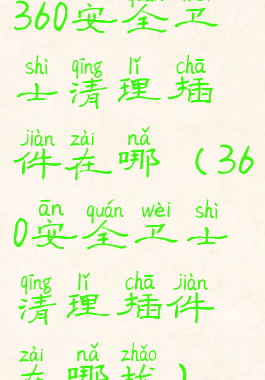 quán wèi
360安全卫
shì qīng lǐ chā
士清理插
jiàn zài nǎ
件在哪（36
ān quán wèi shì
0安全卫士
qīng lǐ chā jiàn
清理插件
zài nǎ zhǎo
在哪找）